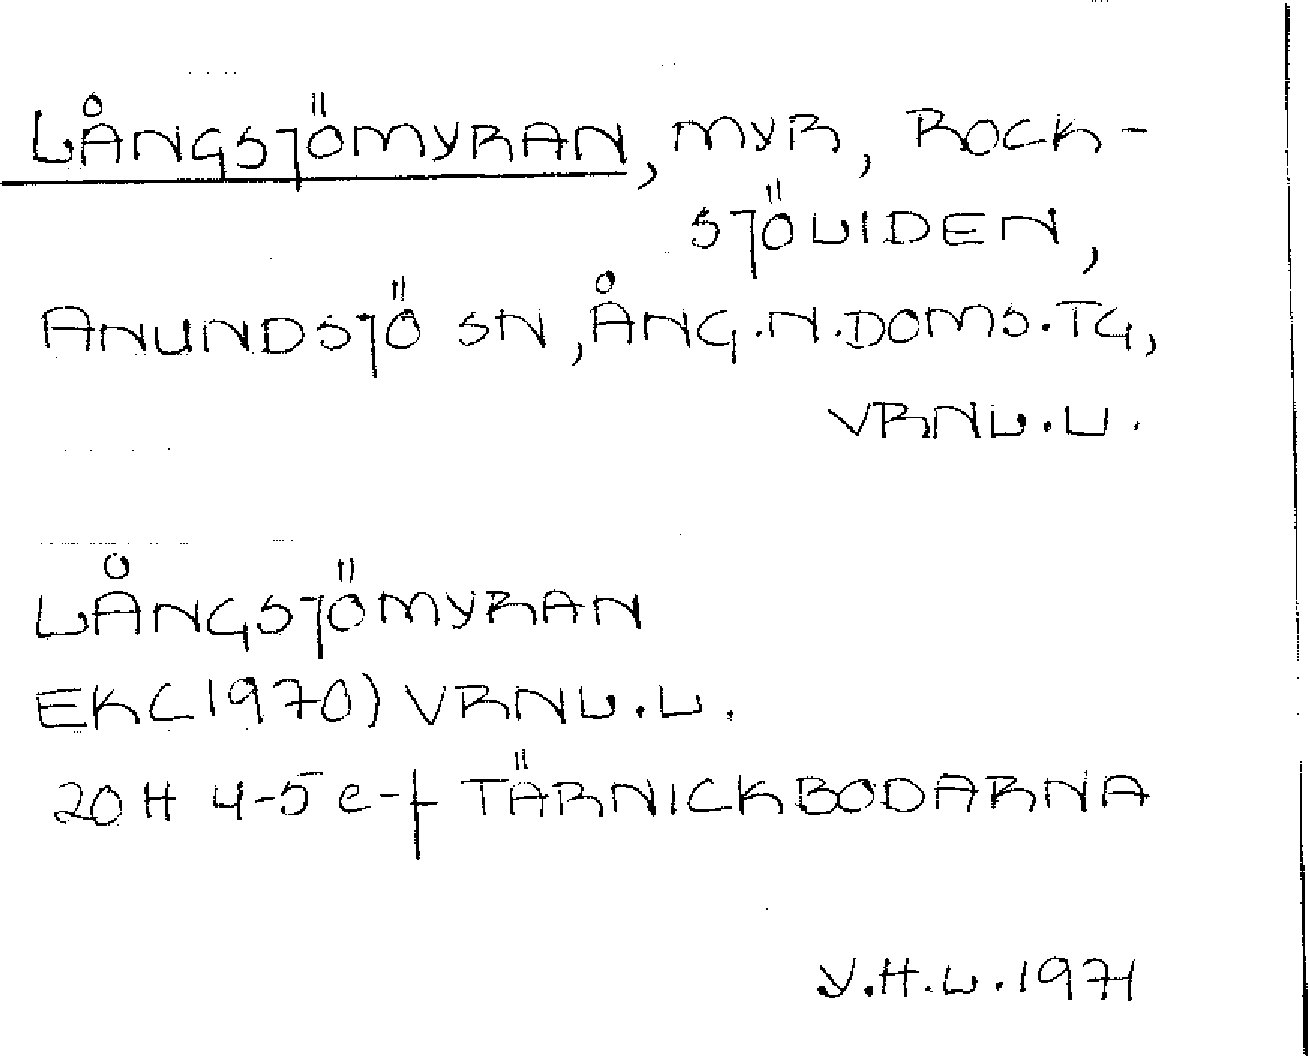 LÅNGSJÖMYRAN, MYR, ROCK-
SJÖLIDEN,
ANUNDSJÖ SN, ÅNG.N.DOMS.TG,
VRNL.L.
LÅNGSJÖMYRAN
EK(1970) VRNL.L.
20H 4-5 e-f TÄRNICKBODARNA
Y.H.L.1971